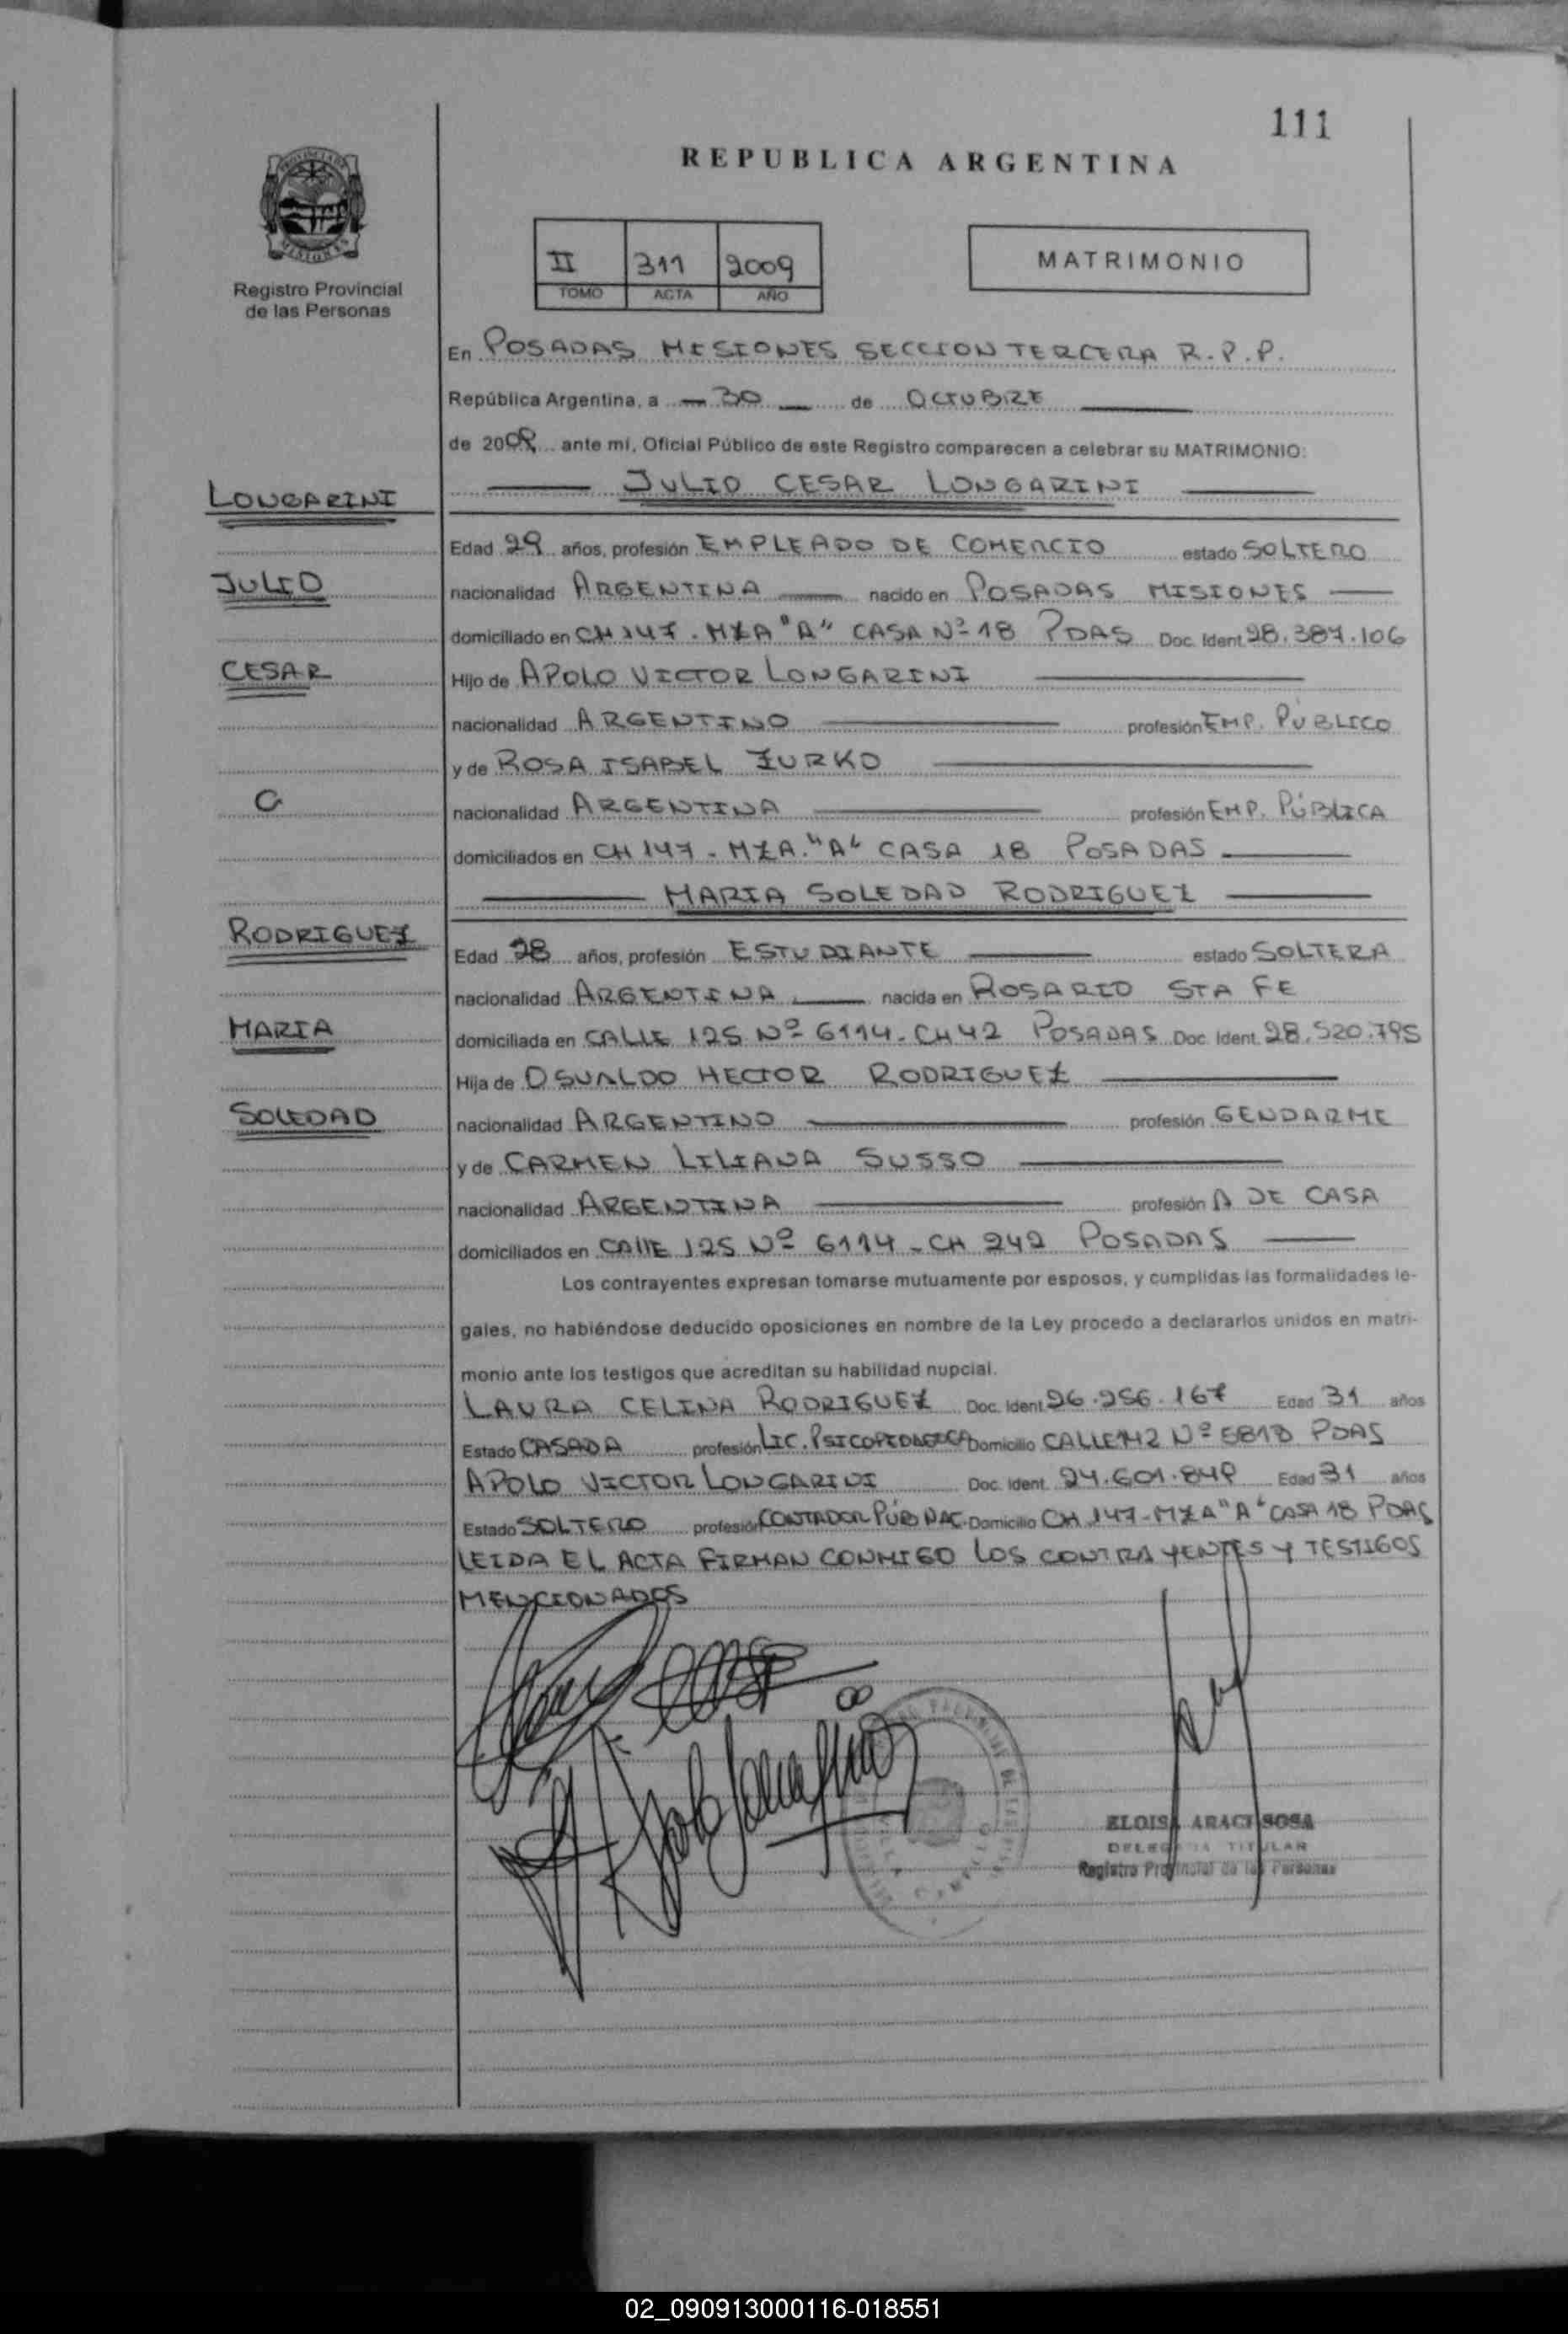 111
REPUBLICA ARGENTINA
PROVINCIA DE MISIONES
Registro Provincial
de las Personas
II 311 2009
TOMO ACTA AÑO
MATRIMONIO
En POSADAS MISIONES SECCION TERCERA R.P.P.
República Argentina, a 30 de OCTUBRE
de 2009 ante mí, Oficial Público de este Registro comparecen a celebrar su MATRIMONIO:
LONGARINI
JULIO CESAR LONGARINI
Edad 29 años, profesión EMPLEADO DE COMERCIO estado SOLTERO
JULIO
nacionalidad ARGENTINA nacido en POSADAS MISIONES
domiciliado en CH 147 - MZA "A" CASA Nº 18 PDAS Doc. Ident. 28.387.106
CESAR
Hijo de APOLO VICTOR LONGARINI
nacionalidad ARGENTINO profesión EMP. PÚBLICO
y de ROSA ISABEL ZURKO
C/
nacionalidad ARGENTINA profesión EMP. PÚBLICA
domiciliados en CH 147 - MZA. "A" CASA 18 POSADAS
MARIA SOLEDAD RODRIGUEZ
RODRIGUEZ
Edad 28 años, profesión ESTUDIANTE estado SOLTERA
nacionalidad ARGENTINA nacida en ROSARIO STA FE
MARIA
domiciliada en CALLE 125 Nº 6114 - CH 42 POSADAS Doc. Ident. 28.520.795
Hija de OSVALDO HECTOR RODRIGUEZ
SOLEDAD
nacionalidad ARGENTINO profesión GENDARME
y de CARMEN LILIANA SUSSO
nacionalidad ARGENTINA profesión A DE CASA
domiciliados en CALLE 125 Nº 6114 - CH 242 POSADAS
Los contrayentes expresan tomarse mutuamente por esposos, y cumplidas las formalidades le-
gales, no habiéndose deducido oposiciones en nombre de la Ley procedo a declararlos unidos en matri-
monio ante los testigos que acreditan su habilidad nupcial.
LAURA CELINA RODRIGUEZ Doc. Ident. 26.256.167 Edad 31 años
Estado CASADA profesión LIC. PSICOPEDAGOGA Domicilio CALLE 142 Nº 5818 PDAS
APOLO VICTOR LONGARINI Doc. Ident. 24.601.849 Edad 31 años
Estado SOLTERO profesión CONTADOR PÚB NAC. Domicilio CH 147 - MZA "A" CASA 18 PDAS
LEIDA EL ACTA FIRMAN CONMIGO LOS CONTRAYENTES Y TESTIGOS
MENCIONADOS
ELOISA ARACI SOSA
DELEGADA TITULAR
Registro Provincial de las Personas
02_090913000116-018551